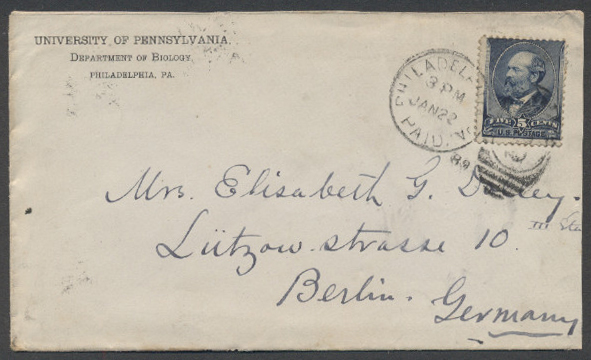 UNIVERSITY OF PENNSYLVANIA.
DEPARTMENT OF BIOLOGY,
PHILADELPHIA, PA.
PHILADEL
3 PM
JAN 22
89
PAID
5
U.S. POSTAGE
Mrs. Elisabeth G.
Lützow-strasse 10.
III
Berlin.
Germany